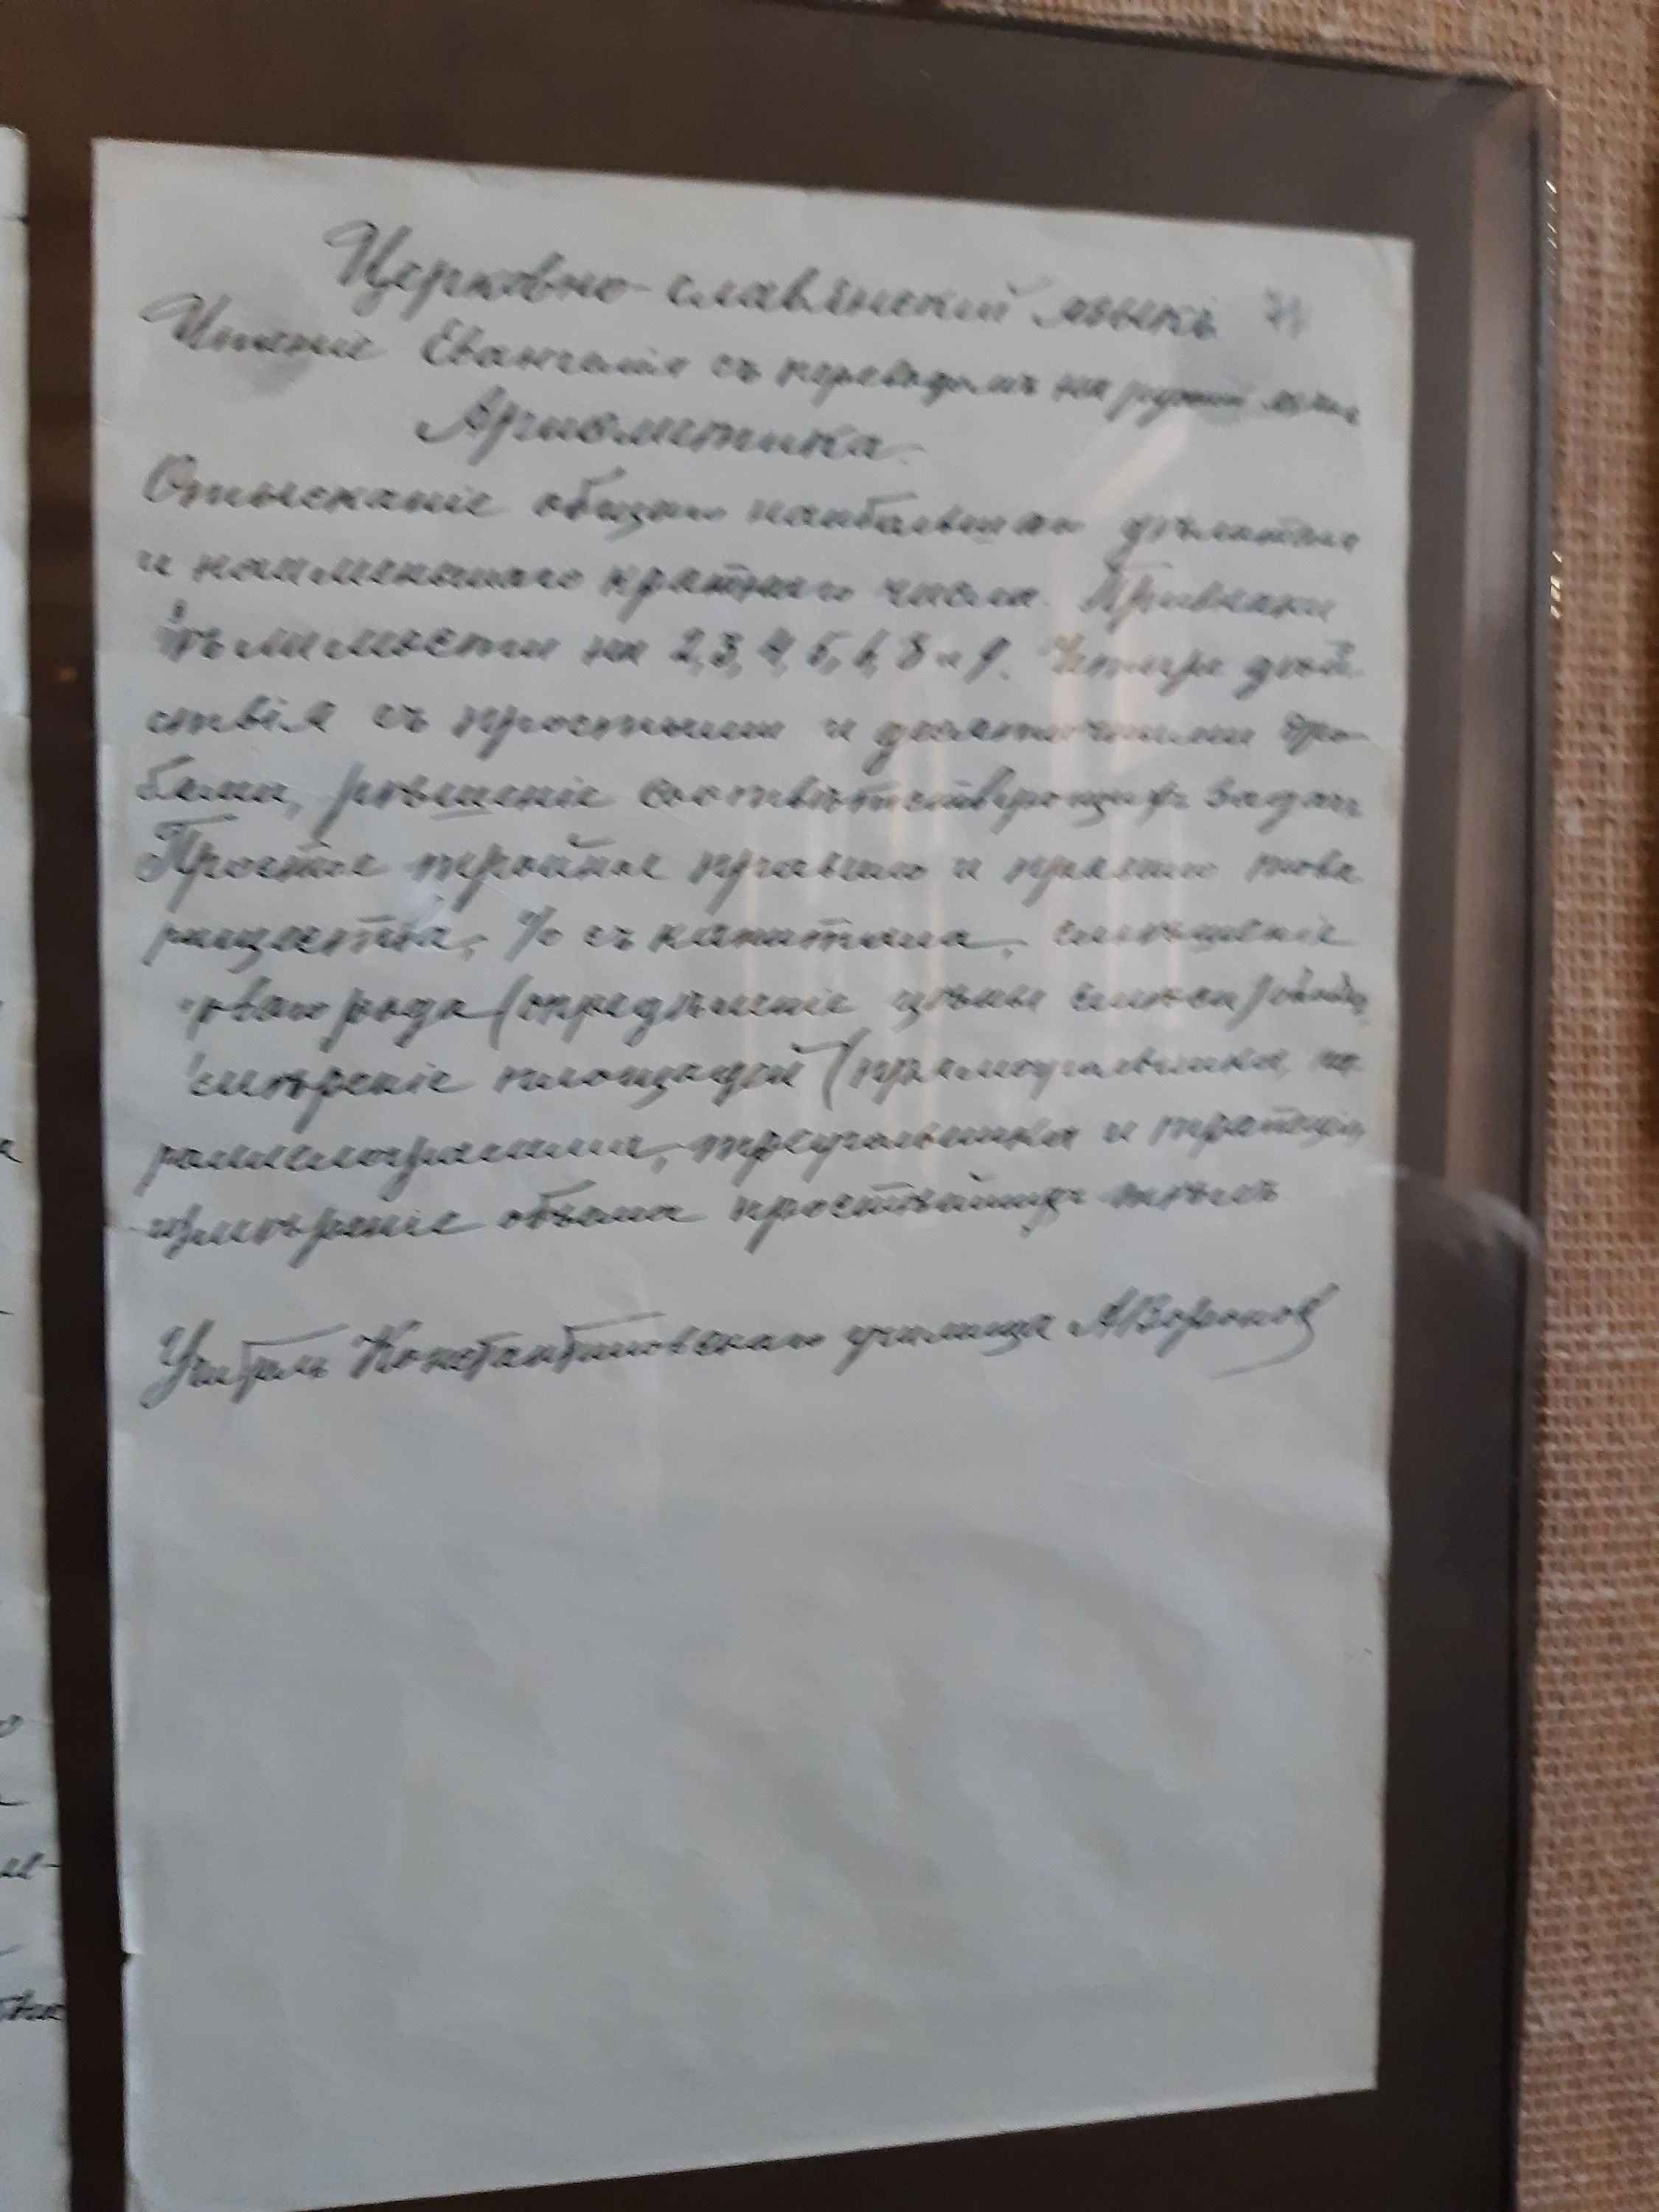 Церковно-славянскій языкъ
Чтеніе Евангелія съ переводомъ на русскій языкъ
Ариѳметика.
Отысканіе общаго наибольшаго дѣлителя
и наименьшаго кратнаго числа. Признаки
дѣлимости на 2, 3, 4, 5, 6, 8 и 9. Четыре дѣй
ствія съ простыми и десятичными дро
бями, рѣшеніе соотвѣтствующихъ задачъ
Простое тройное правило и правило това
рищества, % съ капитала, смѣшеніе
рода (опредѣленіе цѣны смѣси)
измѣреніе площадей (прямоугольника, па
раллелограмма, треугольника и трапеціи,
измѣреніе объема простѣйшихъ тѣлъ
Учитель Константиновскаго училища АВоронов